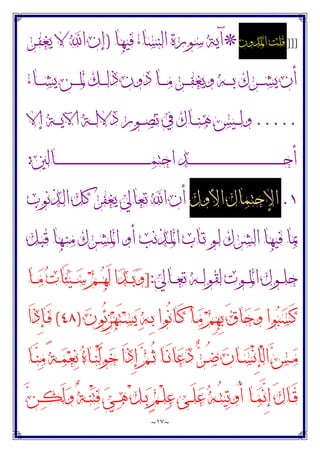 [[[ قلت المدون*آية سورة النساء؛ فيها (إن الله لا يغفر
أن يشرك به ويغفر ما دون ذلك لمن يشاء
..... وليس هناك في تصور دلالة الآية إلا
أحد اجتمالين:
١. الإجتمال الأول أن الله تعالى يغفر كل الذنوب
بما فيها الشرك لو تاب المذنب أو المشرك منها قبل
حلول الموت لقوله تعالى:[وَبَدَا لَهُمْ سَيِّئَاتُ مَا
كَسَبُوا وَحَاقَ بِهِمْ مَا كَانُوا بِهِ يَسْتَهْزِئُونَ (٤٨) فَإِذَا
مَسَّ الْإِنْسَانَ ضُرٌّ دَعَانَا ثُمَّ إِذَا خَوَّلْنَاهُ نِعْمَةً مِنَّا
قَالَ إِنَّمَا أُوتِيتُهُ عَلَى عِلْمٍ بَلْ هِيَ فِتْنَةٌ وَلَكِنَّ
~١٧~